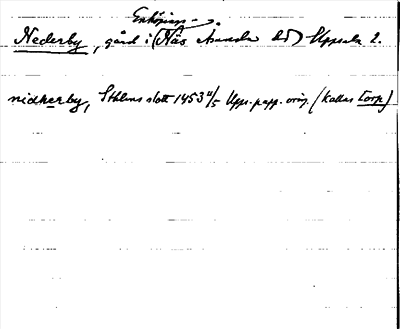 Enköpings-
Nederby, gård i (Näs Asunda hd) Uppsala l.
nidherby, Sthlms slott 1453 11/5 Upps. papp. orig. (kallas torp)